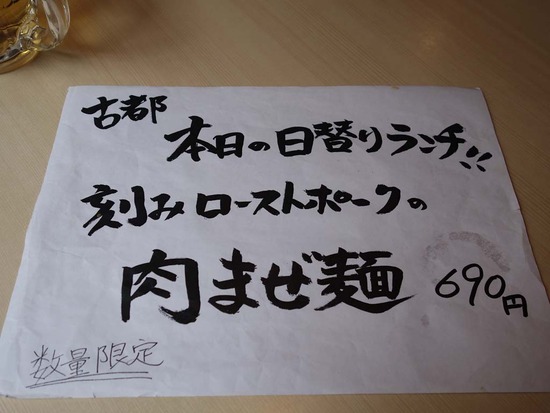 古都
本日の日替りランチ!!
刻みローストポークの
肉まぜ麺 690円
数量限定